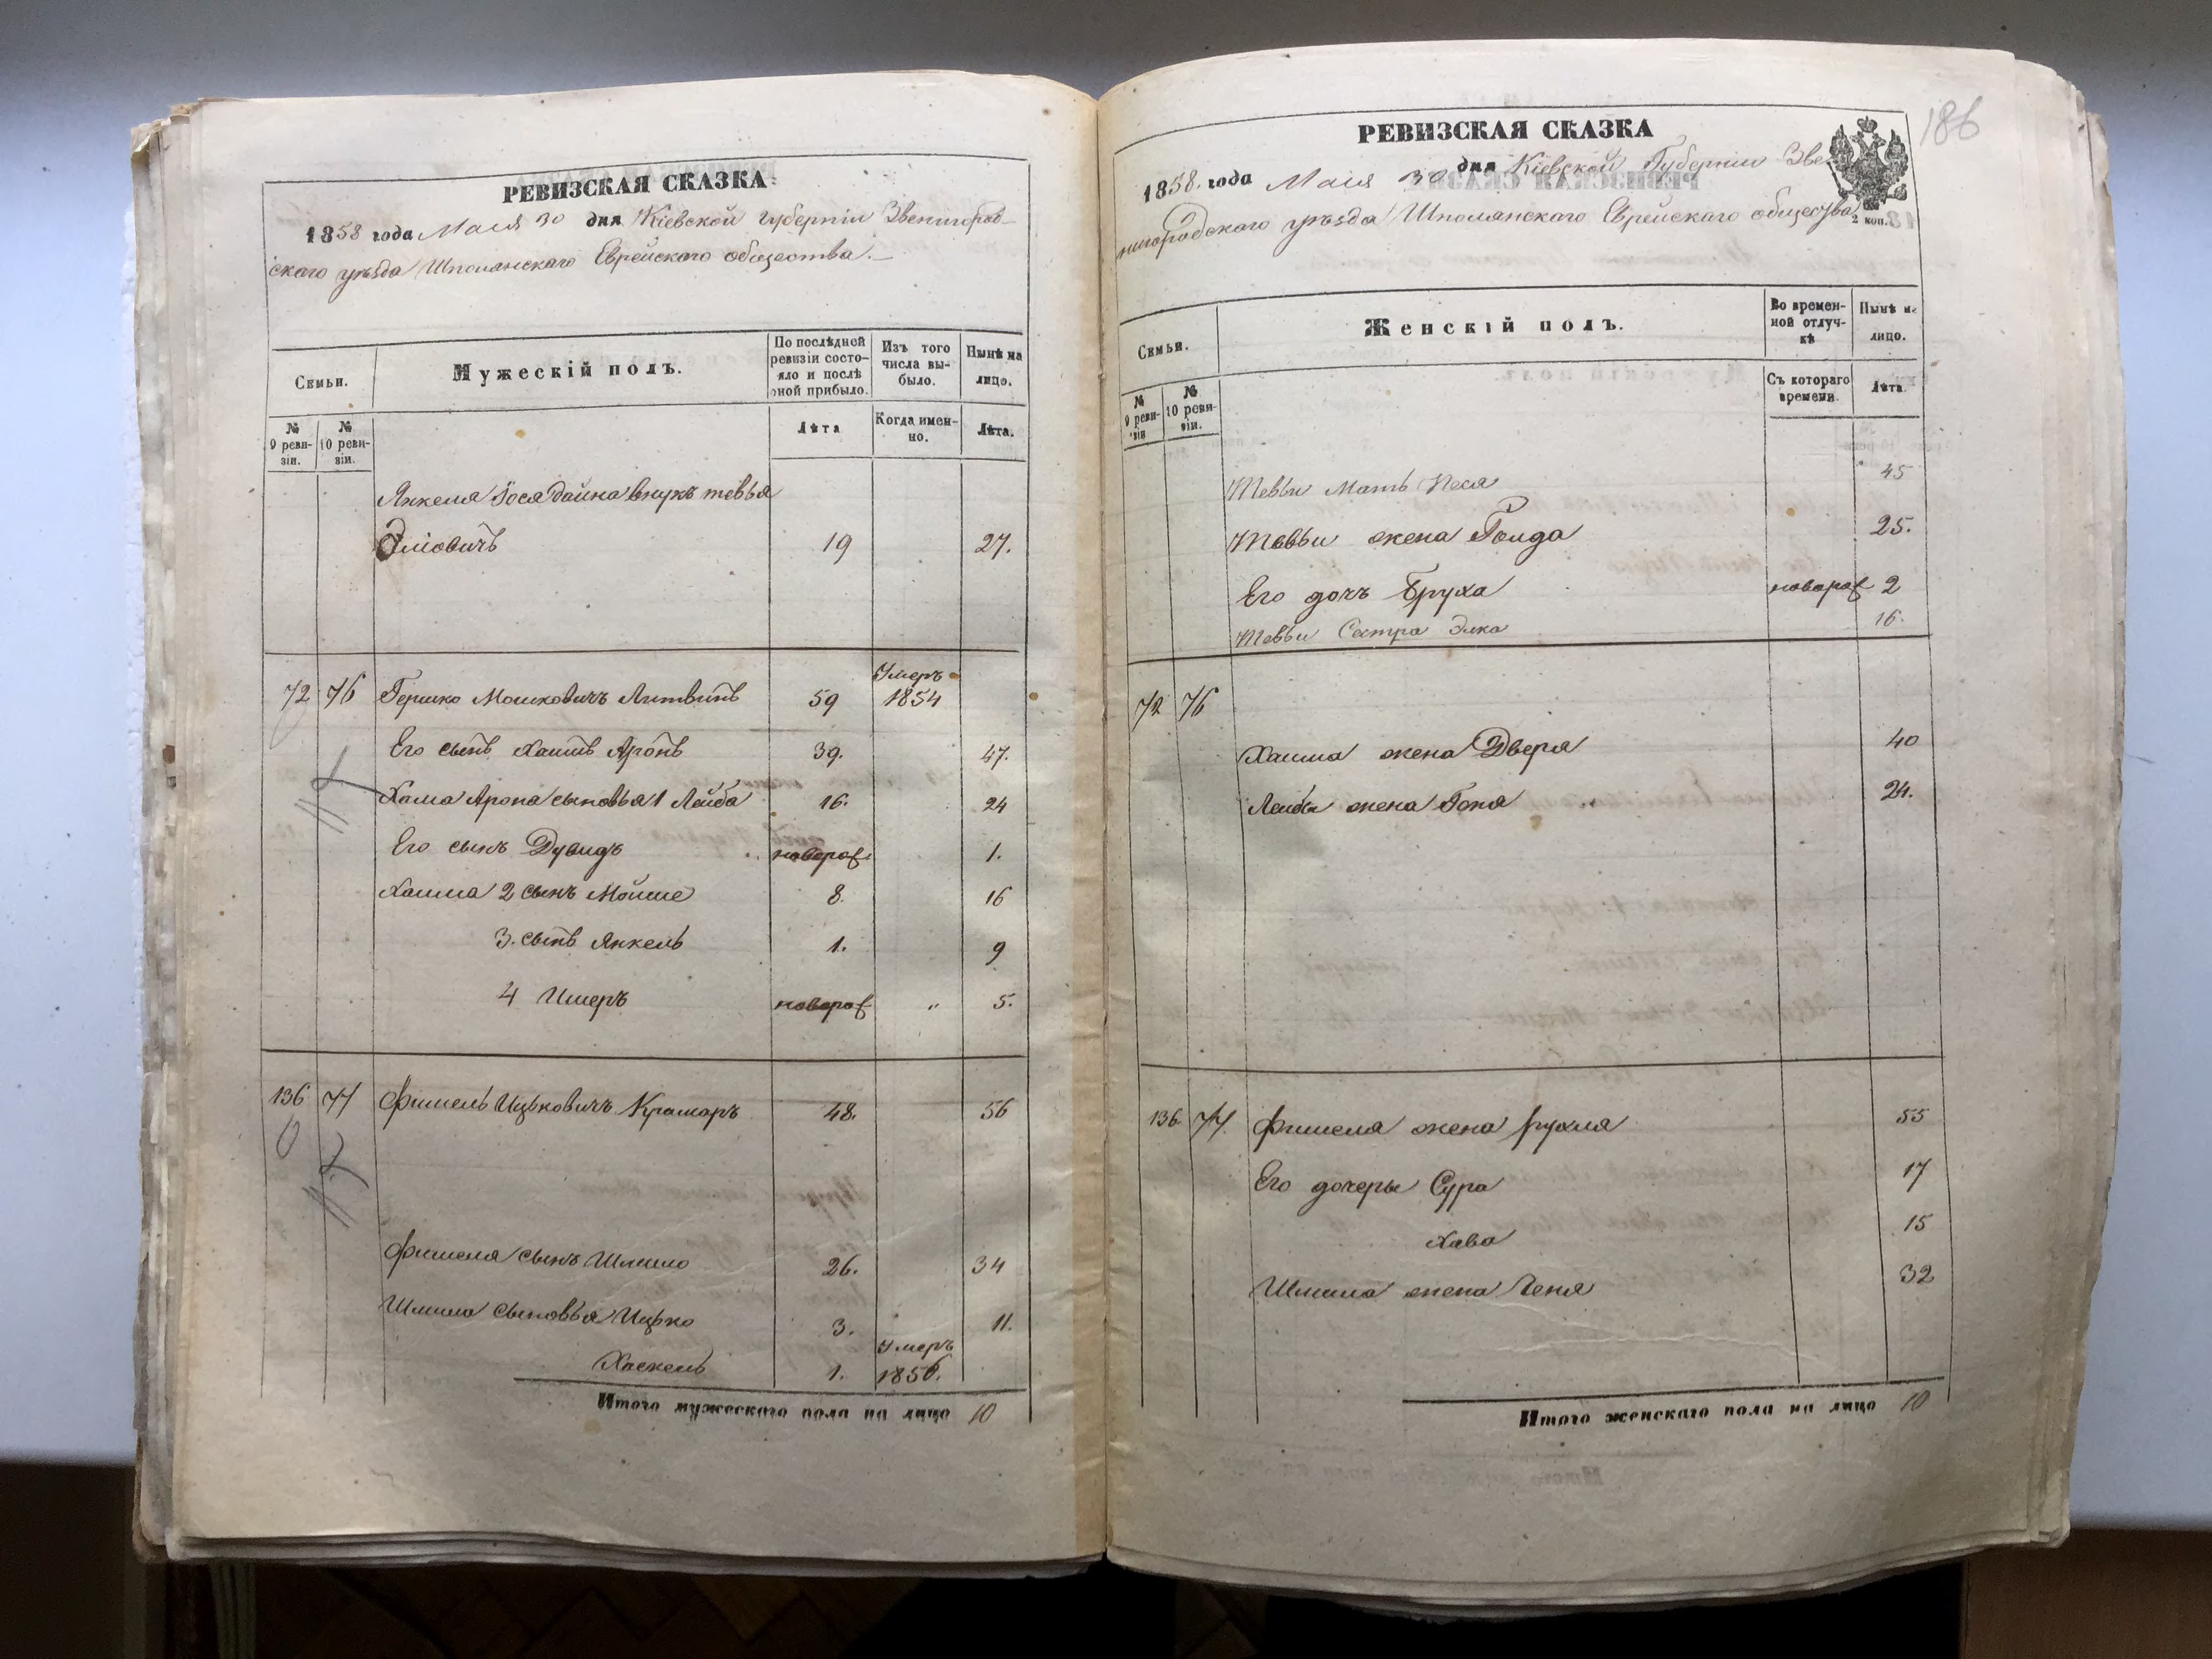 РЕВИЗСКАЯ СКАЗКА
1858 года Мая 30 дня Кіевской губерніи Звенигород-
скаго уѣзда Шполянскаго Еврейскаго общества.
Семьи.
Мужескій полъ.
По послѣдней ревизіи состо-
яло и послѣ оной прибыло.
Изъ того числа вы-
было.
Нынѣ на лицо.
№ 9 реви-
зіи.
№ 10 реви-
зіи.
Лѣта
Когда имен-
но.
Лѣта.
Янкеля Іося внукъ тевья
19 27.
72 76 Гершко Мошковичъ Литвинъ 59 Умеръ 1854
Его сынъ Хаимъ Аронъ 39. 47.
Хаима Арона сыновья 1 Лейба 16. 24
Его сынъ Дувидъ новорож 1.
Хаима 2 сынъ Мойше 8. 16
3. сынъ Янкель 1. 9
4 Имеръ новорож " 5.
136 77 Фишель Ицьковичъ Крамаръ 48. 56
Фишеля сынъ Шлиомо 26. 34
сыновья Ицко 3. 11.
Хаскель 1. Умеръ 1856.
Итого мужескаго пола на лицо 10
186
РЕВИЗСКАЯ СКАЗКА
1858. года Мая 30 дня Кіевской Губерніи Зве-
нигородскаго уѣзда Шполянскаго Еврейскаго общества
2 коп.
Семьи.
Женскій полъ.
Во времен-
ной отлуч-
кѣ
Нынѣ на лицо.
№ 9 реви-
зіи
№ 10 реви-
зіи.
Съ котораго времени.
Лѣта.
Тевьи Мать Песя 45
Тевьи жена Голда 25.
Его дочь Бруха новорож 2
Тевьи Сестра Элка 16.
72 76
Хаима жена Двера 40
Лейбы жена Геня 24.
136 77. Фишеля жена Рухля 55
Его дочеры Сура 17
Хава 15
жена Геня 32
Итого женскаго пола на лицо 10